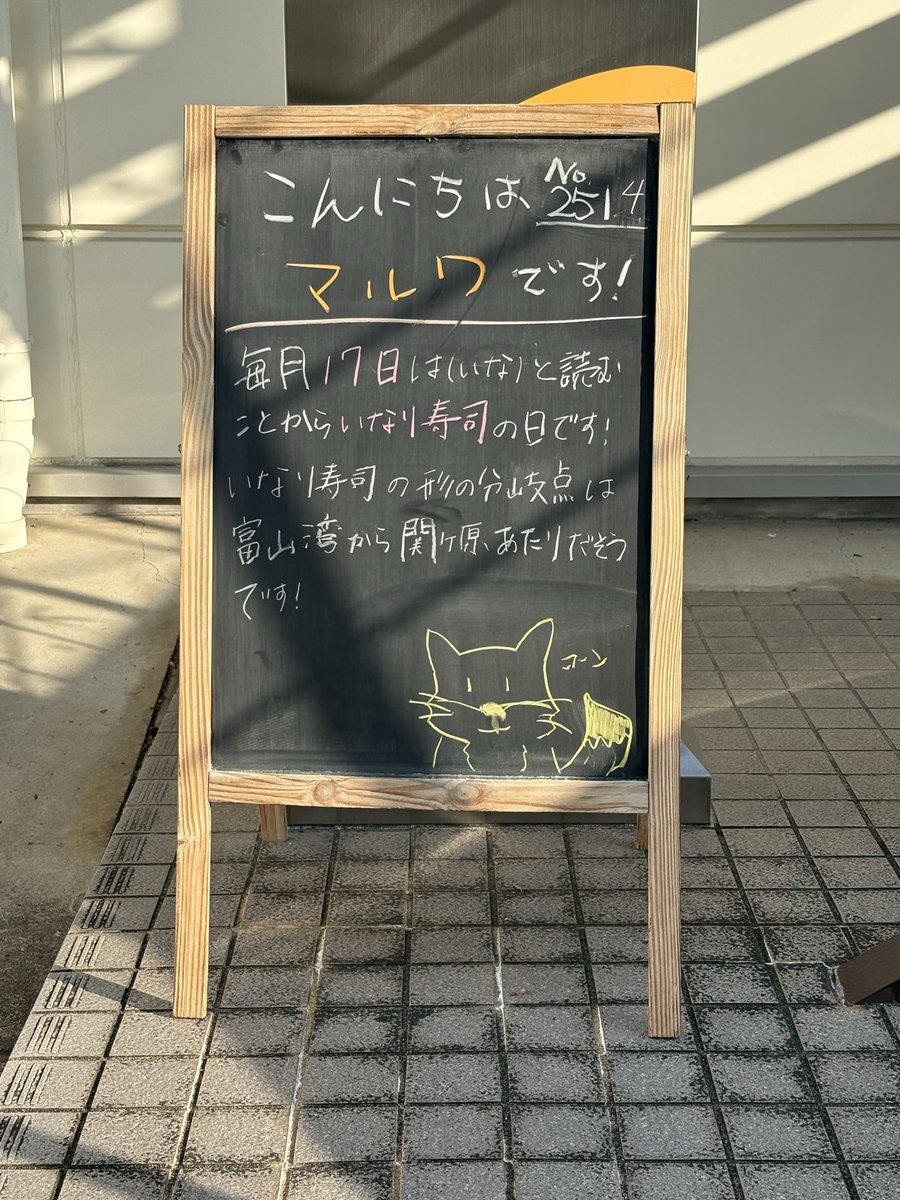 こんにちは No 2514
マルワです!
毎月17日は(いな)と読む
ことからいなり寿司の日です!
いなり寿司の形の分岐点は
富山湾から関ヶ原、あたりだそう
です!
コーン